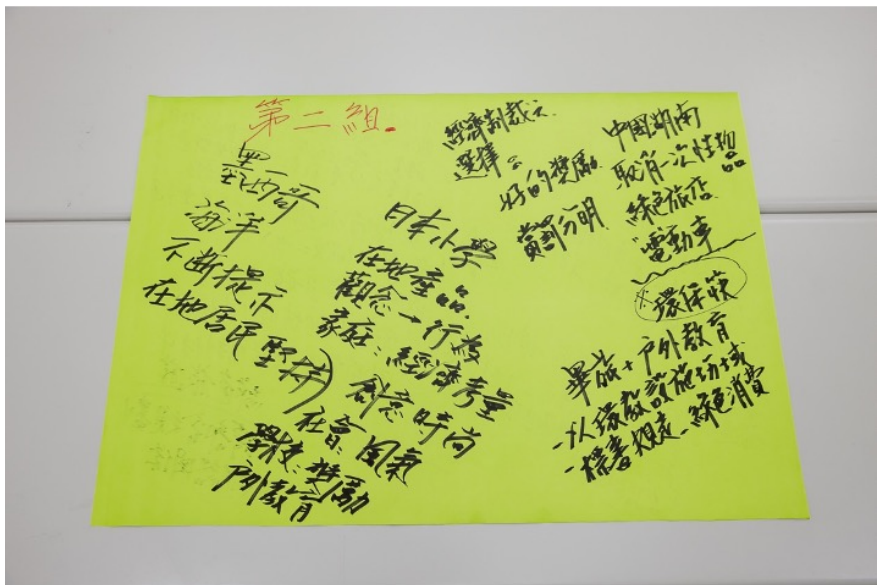 第二組.
墨西哥
海洋
不斷提示
在地居民 堅持
日本小學
在地產品.
觀念→行為
家庭:經濟考量
創意時尚
社會:風氣
學校:獎勵
戶外教育
經濟制裁
選擇:
好的獎勵.
賞罰分明.
中國湖南
取消一次性物品
綠色旅店.
電動車
※環保筷
畢旅+戶外教育
-以環教設施場域
-標書規定-綠色消費